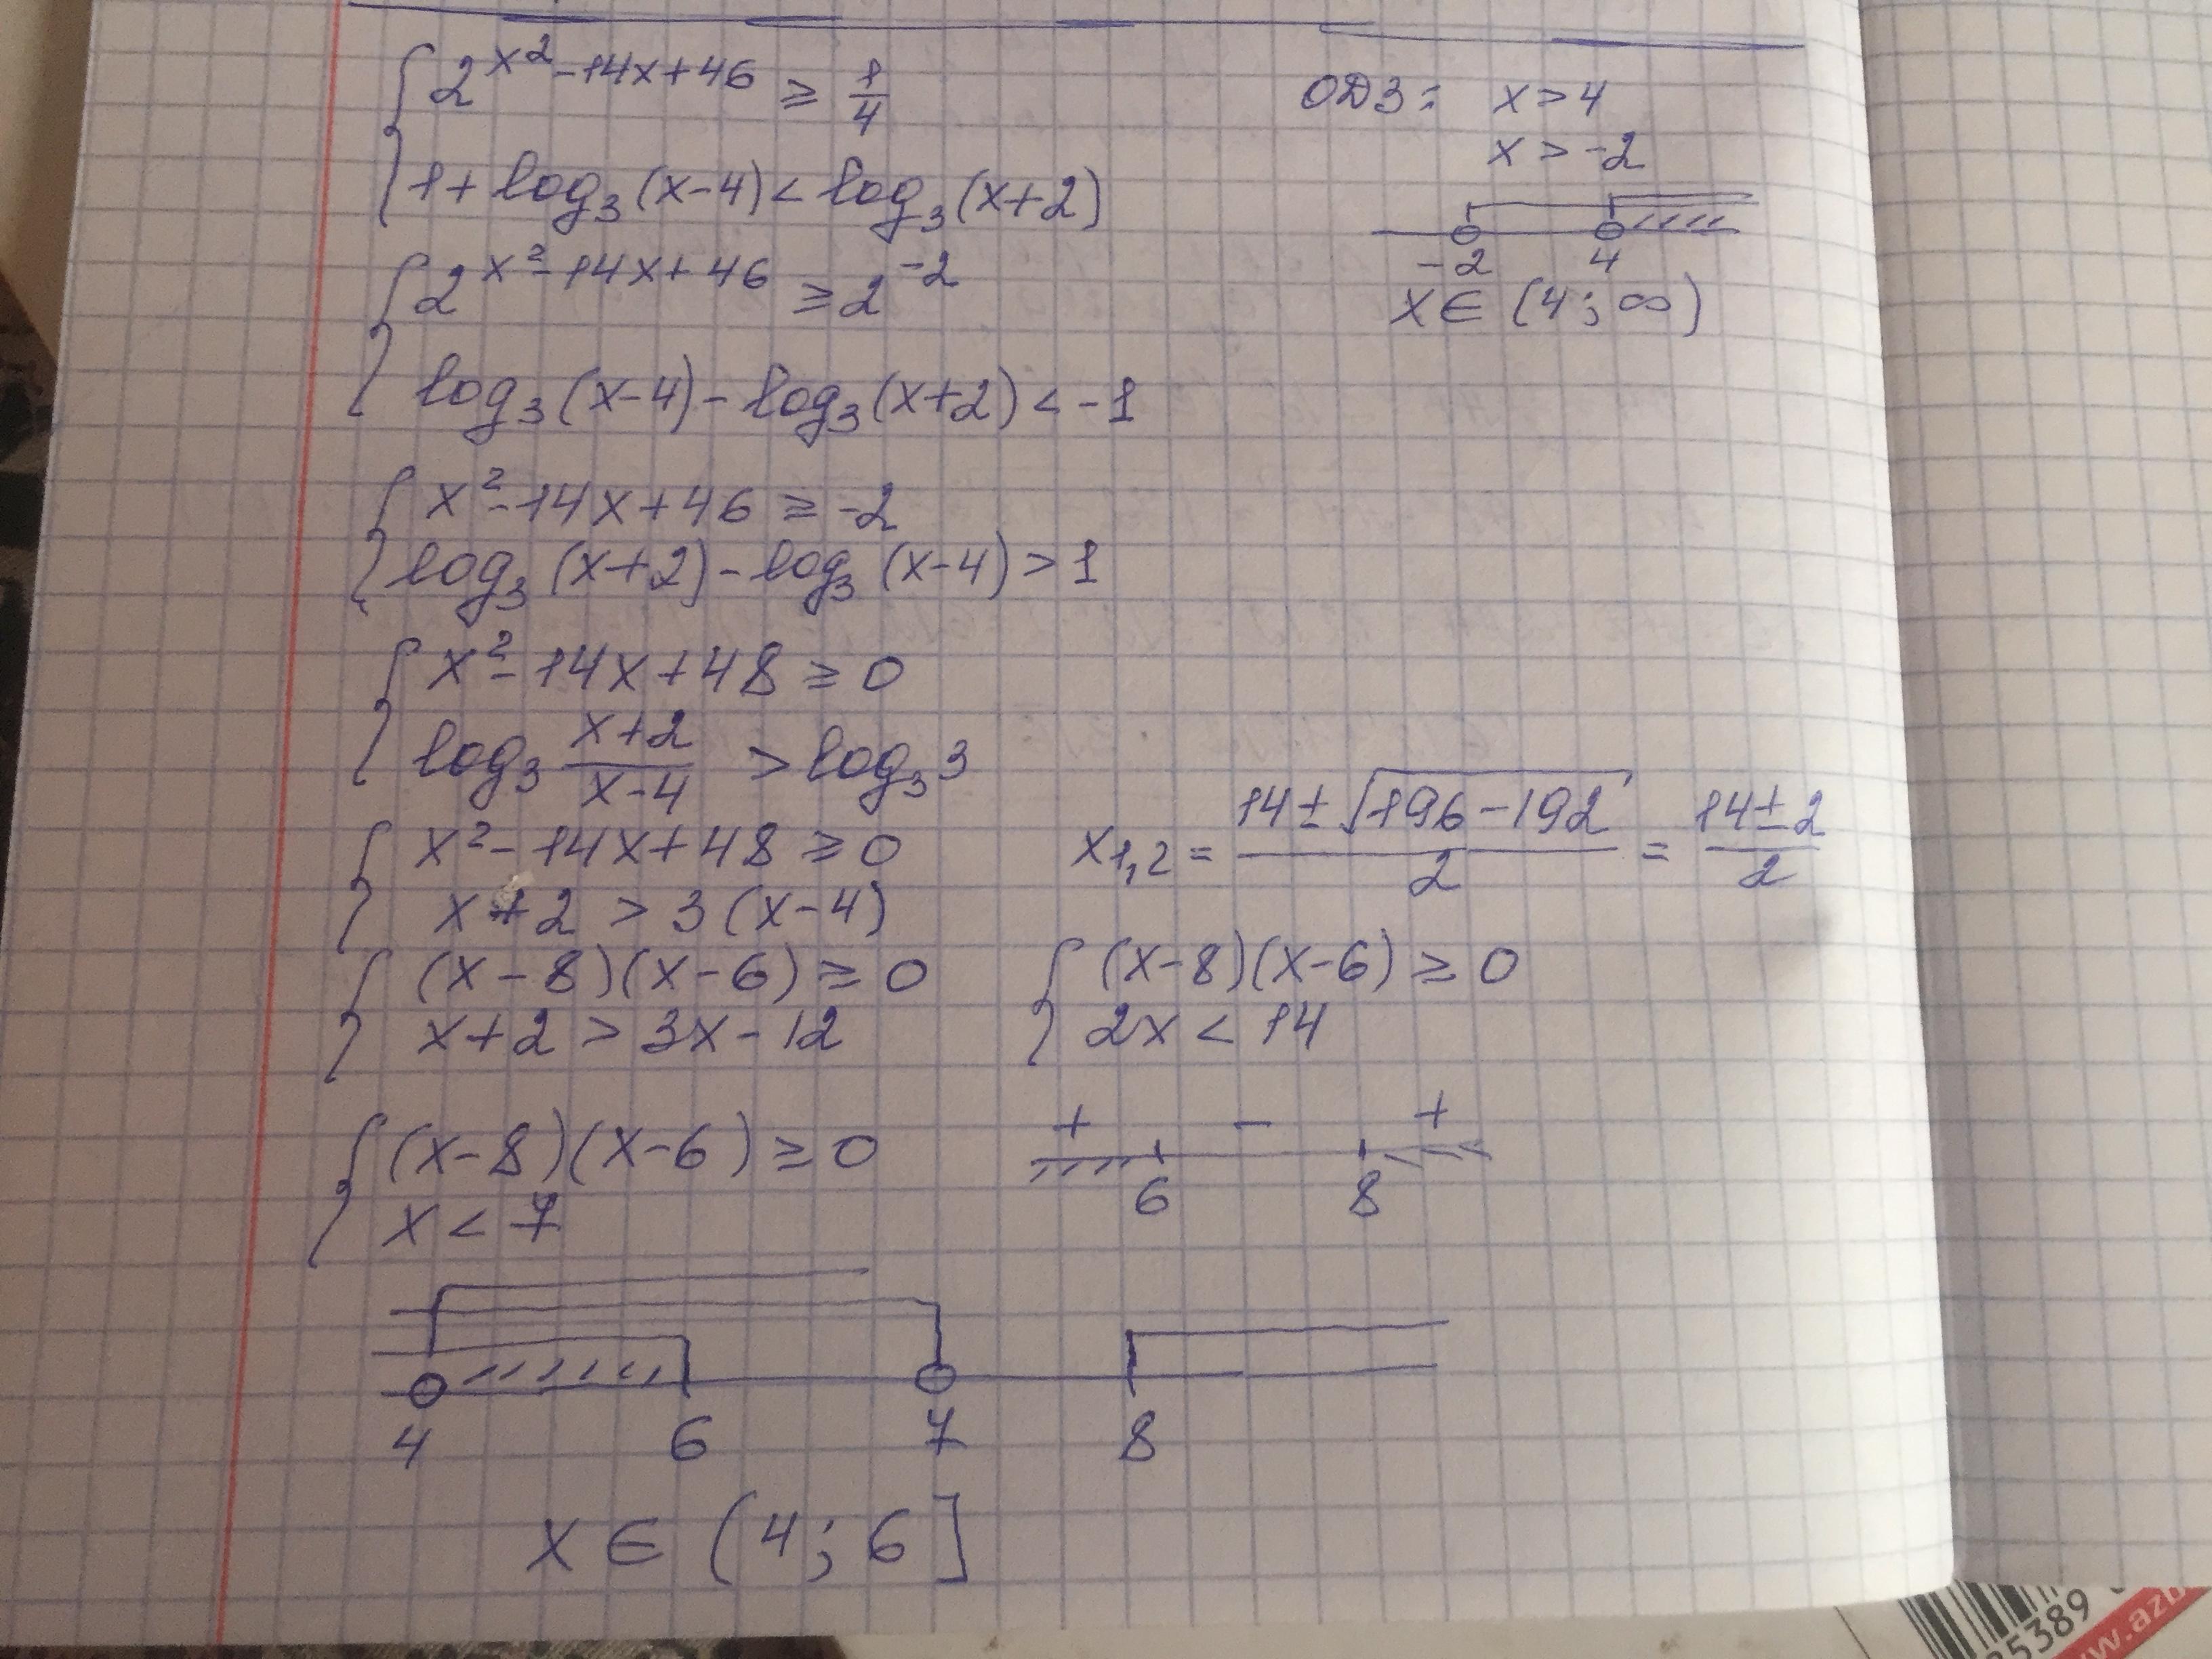 { 2^{x²-14x+46} ≥ 1/4
{ 1+log₃(x-4) < log₃(x+2)
ОДЗ: x>4
x>-2
-2 4
x∈(4;∞)
{ 2^{x²-14x+46} ≥ 2^{-2}
{ log₃(x-4)-log₃(x+2) < -1
{ x²-14x+46 ≥ -2
{ log₃(x+2)-log₃(x-4) > 1
{ x²-14x+48 ≥ 0
{ log₃ (x+2)/(x-4) > log₃3
{ x²-14x+48 ≥ 0
{ x+2 > 3(x-4)
x₁,₂ = (14±√(196-192))/2 = (14±2)/2
{ (x-8)(x-6) ≥ 0
{ x+2 > 3x-12
{ (x-8)(x-6) ≥ 0
{ 2x < 14
{ (x-8)(x-6) ≥ 0
{ x < 7
+ - +
6 8
4 6 7 8
x∈(4;6]
35389
w.azb